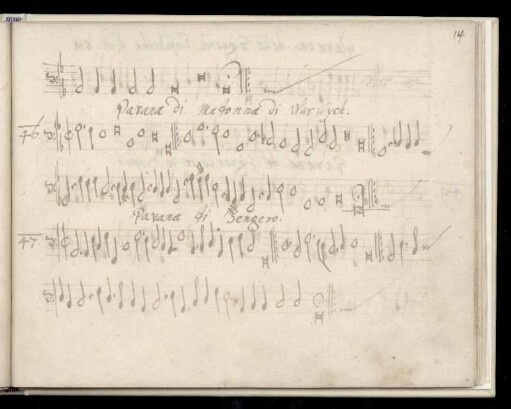 14
Pavana di Madonna di Warwych.
46
Pavana di Zengero.
47